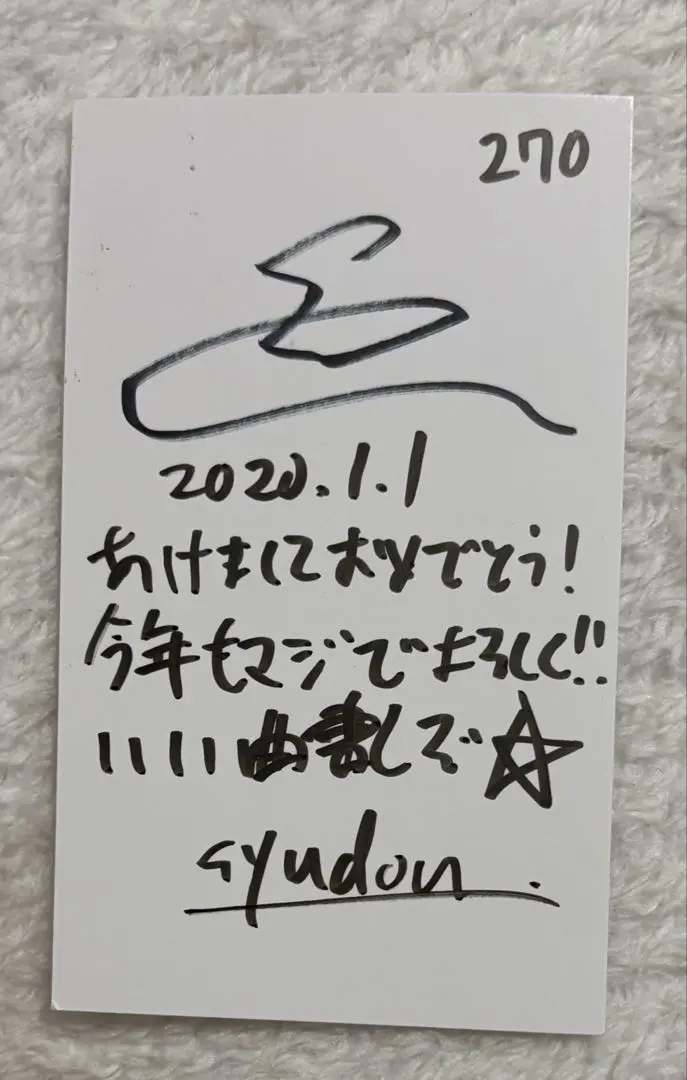 270
2020.1.1
あけましておめでとう!
今年もマジでよろしく!!
いい曲書くぞ☆
syudou.